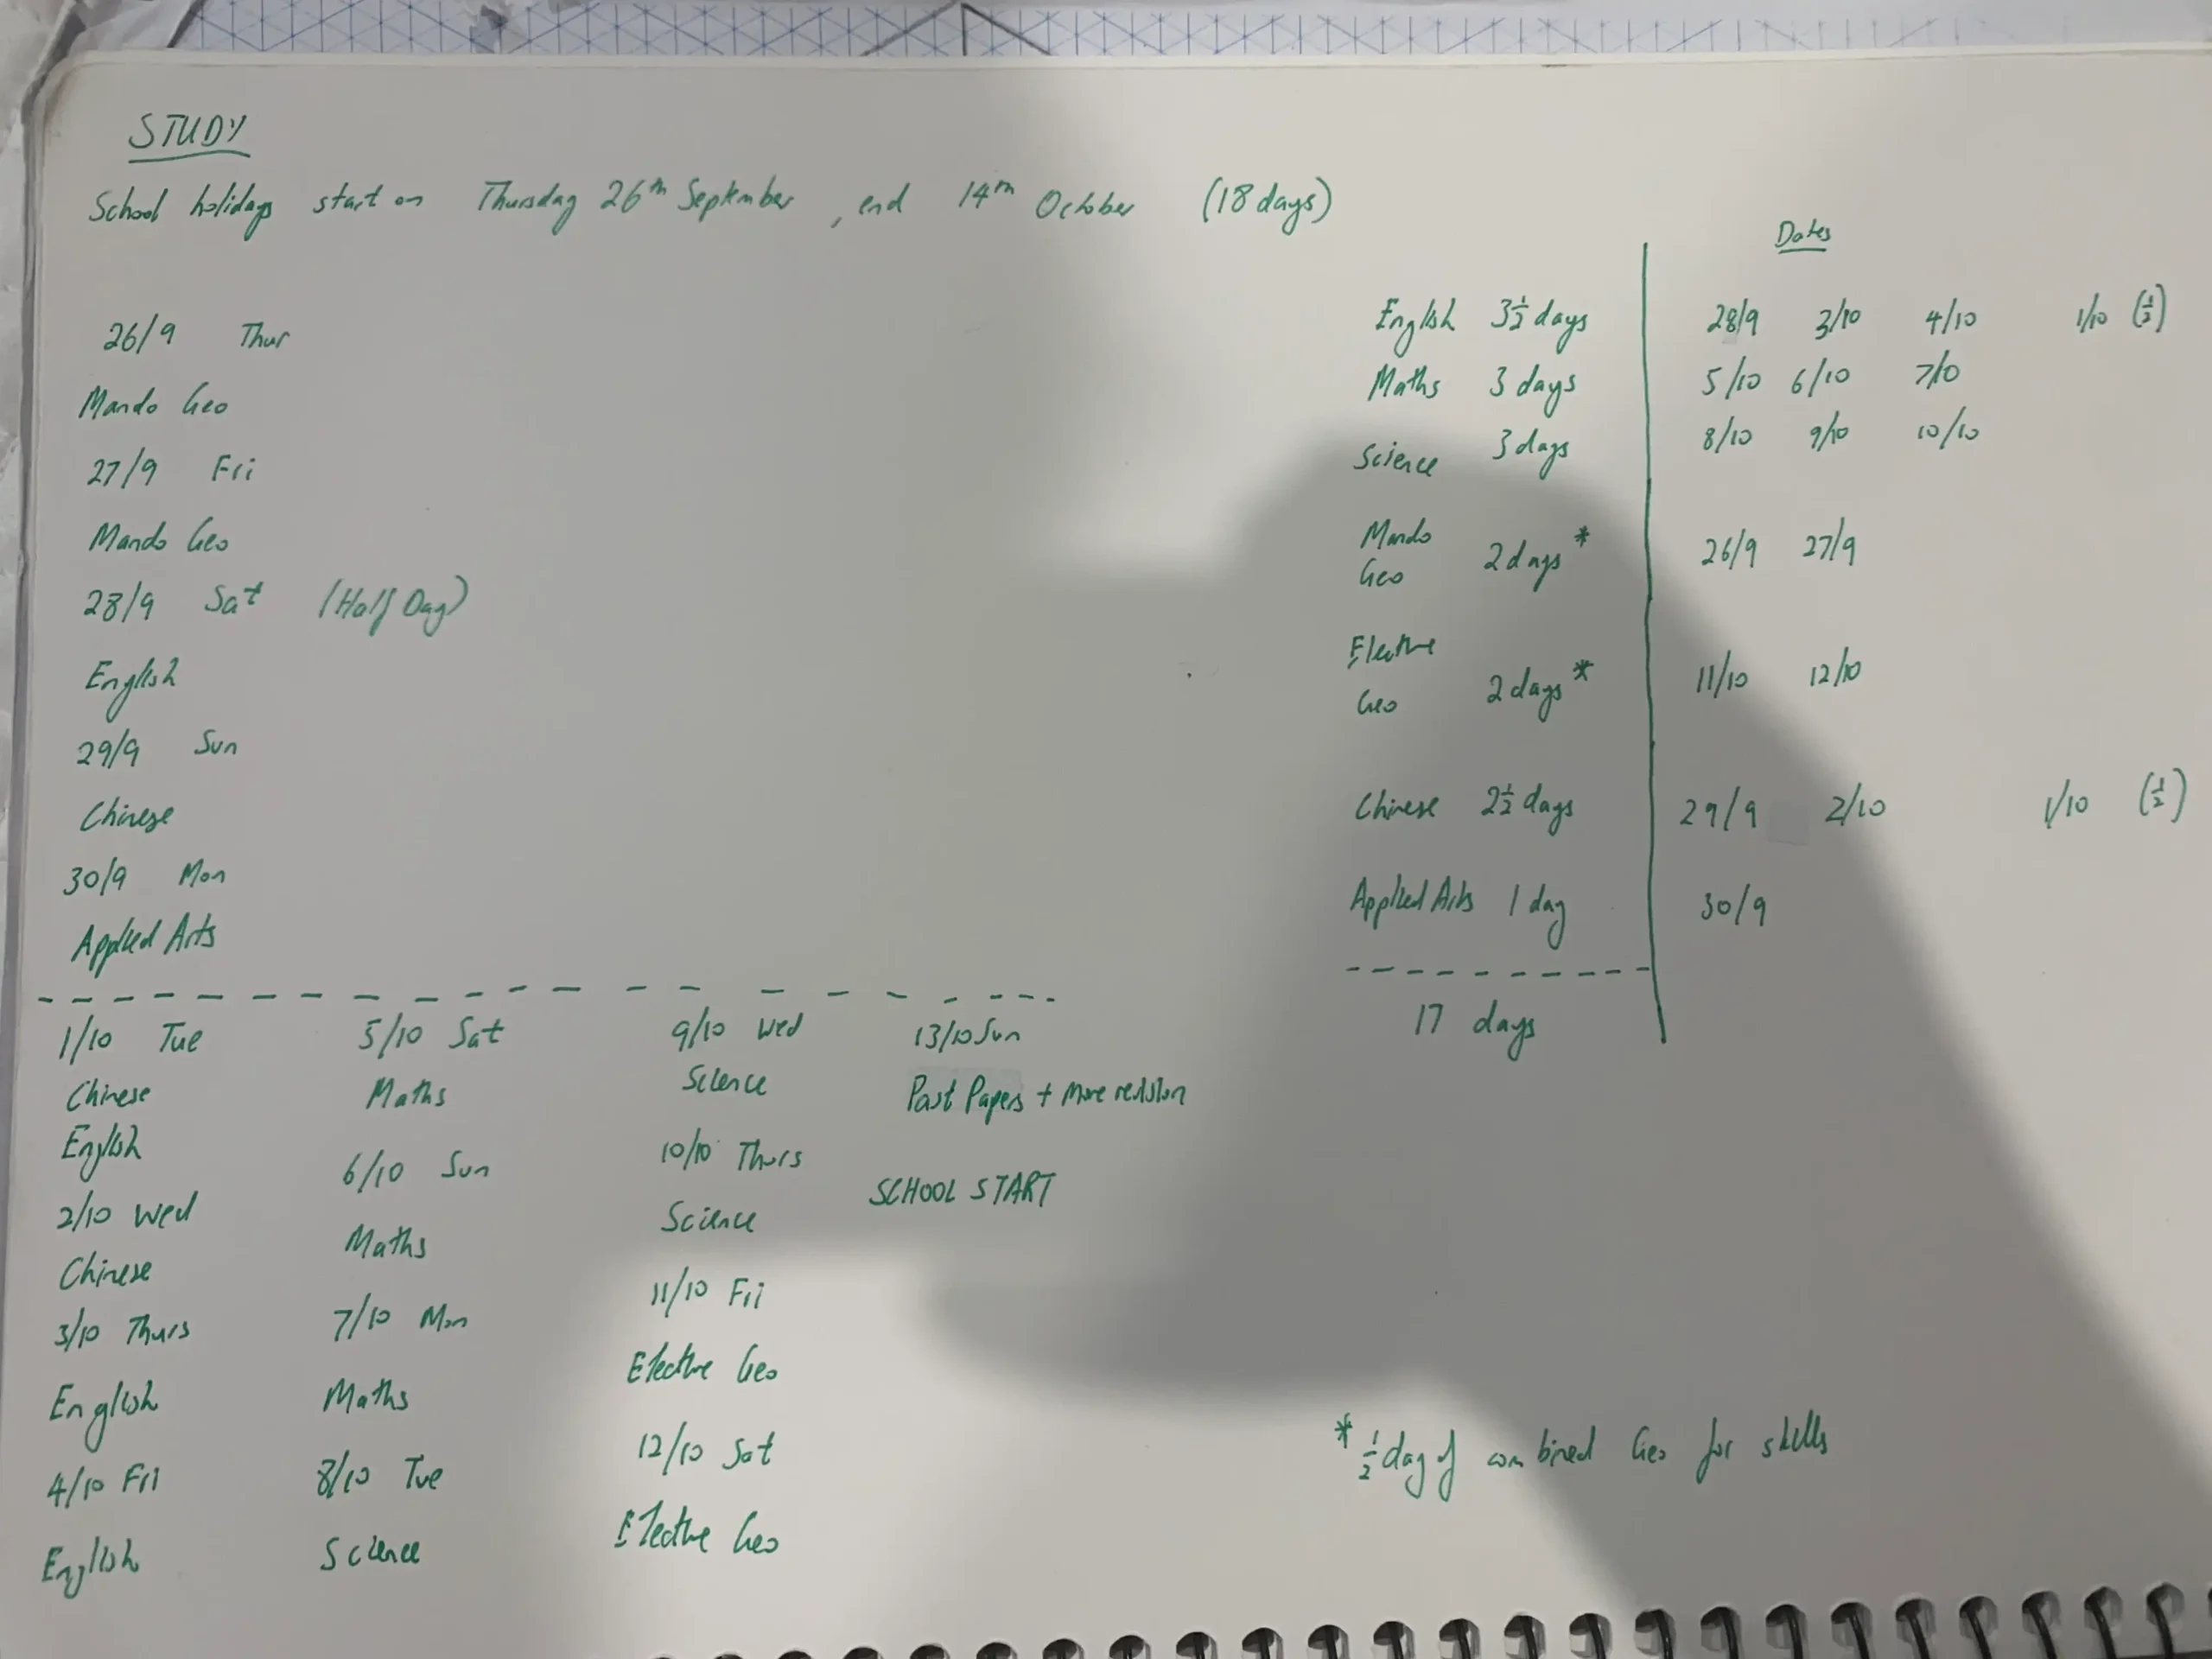 STUDY
School holidays start on Thursday 26th September, end 14th October (18 days)
26/9 Thur
Mando Geo
27/9 Fri
Mando Geo
28/9 Sat (Half Day)
English
29/9 Sun
Chinese
30/9 Mon
Applied Arts
1/10 Tue
Chinese
English
2/10 Wed
Chinese
3/10 Thurs
English
4/10 Fri
English
5/10 Sat
Maths
6/10 Sun
Maths
7/10 Mon
Maths
8/10 Tue
Science
9/10 Wed
Science
10/10 Thurs
Science
11/10 Fri
Elective Geo
12/10 Sat
Elective Geo
13/10 Sun
Past Papers + More revision
SCHOOL START
Dates
English 3½ days 28/9 3/10 4/10 1/10 (½)
Maths 3 days 5/10 6/10 7/10
Science 3 days 8/10 9/10 10/10
Mando
Geo 2 days* 26/9 27/9
Elective
Geo 2 days* 11/10 12/10
Chinese 2½ days 29/9 2/10 1/10 (½)
Applied Arts 1 day 30/9
17 days
* ½ day of combined Geo for skills